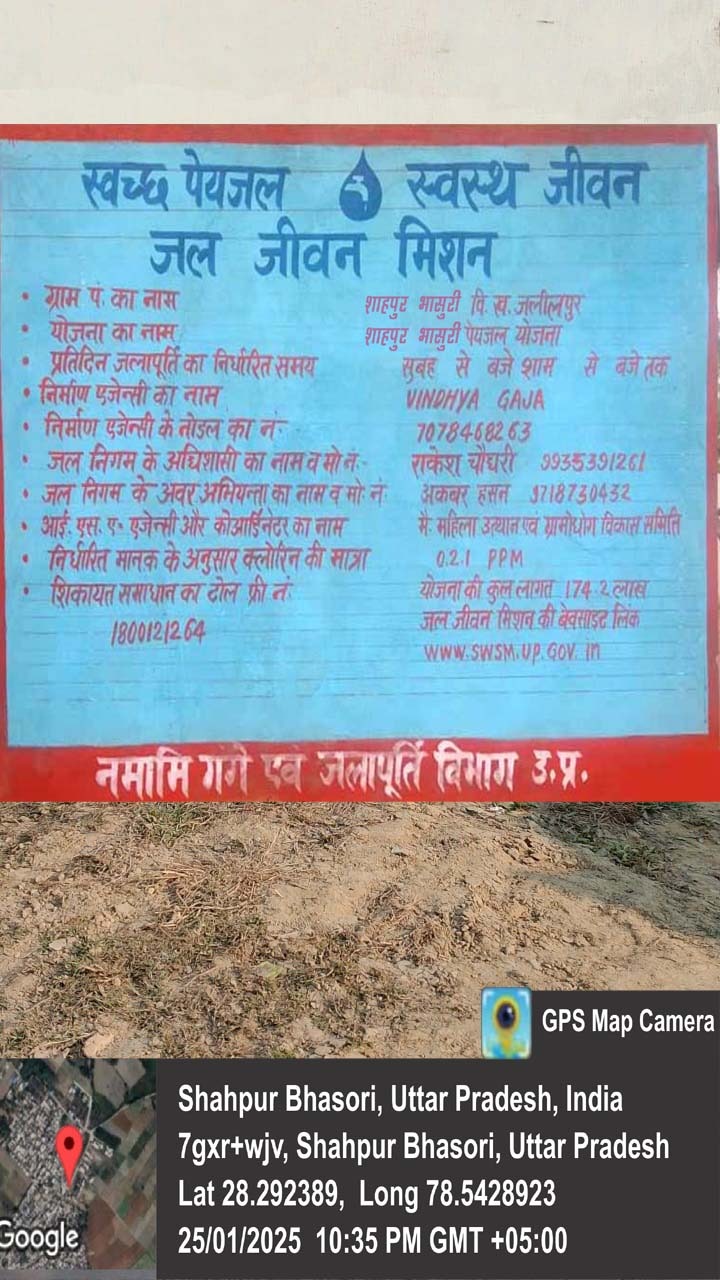 स्वच्छ पेयजल स्वस्थ जीवन
जल जीवन मिशन
• ग्राम पं. का नाम शाहपुर भासुरी वि. ख. जलीलपुर
• योजना का नाम शाहपुर भासुरी पेयजल योजना
• प्रतिदिन जलापूर्ति का निर्धारित समय सुबह से बजे शाम से बजे तक
• निर्माण एजेन्सी का नाम VINDHYA GAJA
• निर्माण एजेन्सी के नोडल का नं:- 7078468263
• जल निगम के अधिशासी का नाम व मो नं:- राकेश चौधरी 9935391261
• जल निगम के अवर अभियन्ता का नाम व मो: नं: अकबर हसन 9718730432
• आई. एस. ए. एजेन्सी और कोआर्डिनेटर का नाम मै. महिला उत्थान एवं ग्रामोधोग विकास समिति
• निर्धारित मानक के अनुसार क्लोरिन की मात्रा 0.2.1 PPM
• शिकायत समाधान का टोल फ्री नं: योजना की कुल लागत 174.2 लाख
1800121264 जल जीवन मिशन की बेवसाइट लिंक
WWW.SWSM.UP.GOV.in
नमामि गंगे एवं जलापूर्ति विभाग उ.प्र.
GPS Map Camera
Shahpur Bhasori, Uttar Pradesh, India
7gxr+wjv, Shahpur Bhasori, Uttar Pradesh
Lat 28.292389, Long 78.5428923
25/01/2025 10:35 PM GMT +05:00
Google